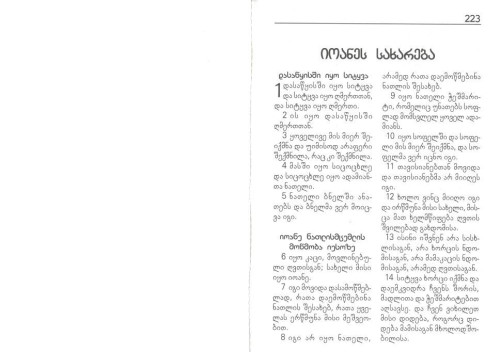 223
იოანეს სახარება
დასაწყისში იყო სიტყვა
1 დასაწყისში იყო სიტყვა
და სიტყვა იყო ღმერთთან,
და სიტყვა იყო ღმერთი.
2 ის იყო დასაწყისში
ღმერთთან.
3 ყოველივე მის მიერ შე-
იქმნა და უიმისოდ არაფერი
შექმნილა, რაც კი შექმნილა.
4 მასში იყო სიცოცხლე
და სიცოცხლე იყო ადამიან-
თა ნათელი.
5 ნათელი ბნელში ანა-
თებს და ბნელმა ვერ მოიც-
ვა იგი.
იოანე ნათლისმცემლის
მოწმობა იესოზე
6 იყო კაცი, მოვლინებუ-
ლი ღვთისგან; სახელი მისი
იყო იოანე.
7 იგი მოვიდა დასამოწმებ-
ლად, რათა დაემოწმებინა
ნათლის შესახებ, რათა ყვე-
ლას ერწმუნა მისი მეშვეო-
ბით.
8 იგი არ იყო ნათელი,
არამედ რათა დაემოწმებინა
ნათლის შესახებ.
9 იყო ნათელი ჭეშმარი-
ტი, რომელიც უნათებს სოფ-
ლად მომსვლელ ყოველ ადა-
მიანს.
10 იყო სოფელში და სოფე-
ლი მის მიერ შეიქმნა, და სო-
ფელმა ვერ იცნო იგი.
11 თავისიანებთან მოვიდა
და თავისიანებმა არ მიიღეს
იგი.
12 ხოლო ვინც მიიღო იგი
და ირწმუნა მისი სახელი, მის-
ცა მათ ხელმწიფება ღვთის
შვილებად გახდომისა.
13 ისინი იშვნენ არა სისხ-
ლისაგან, არც ხორცის ნდო-
მისაგან, არც მამაკაცის ნდო-
მისაგან, არამედ ღვთისაგან.
14 სიტყვა ხორცი იქმნა და
დაემკვიდრა ჩვენს შორის,
მადლითა და ჭეშმარიტებით
აღსავსე. და ჩვენ ვიხილეთ
მისი დიდება, როგორც დი-
დება მამისაგან მხოლოდშო-
ბილისა.